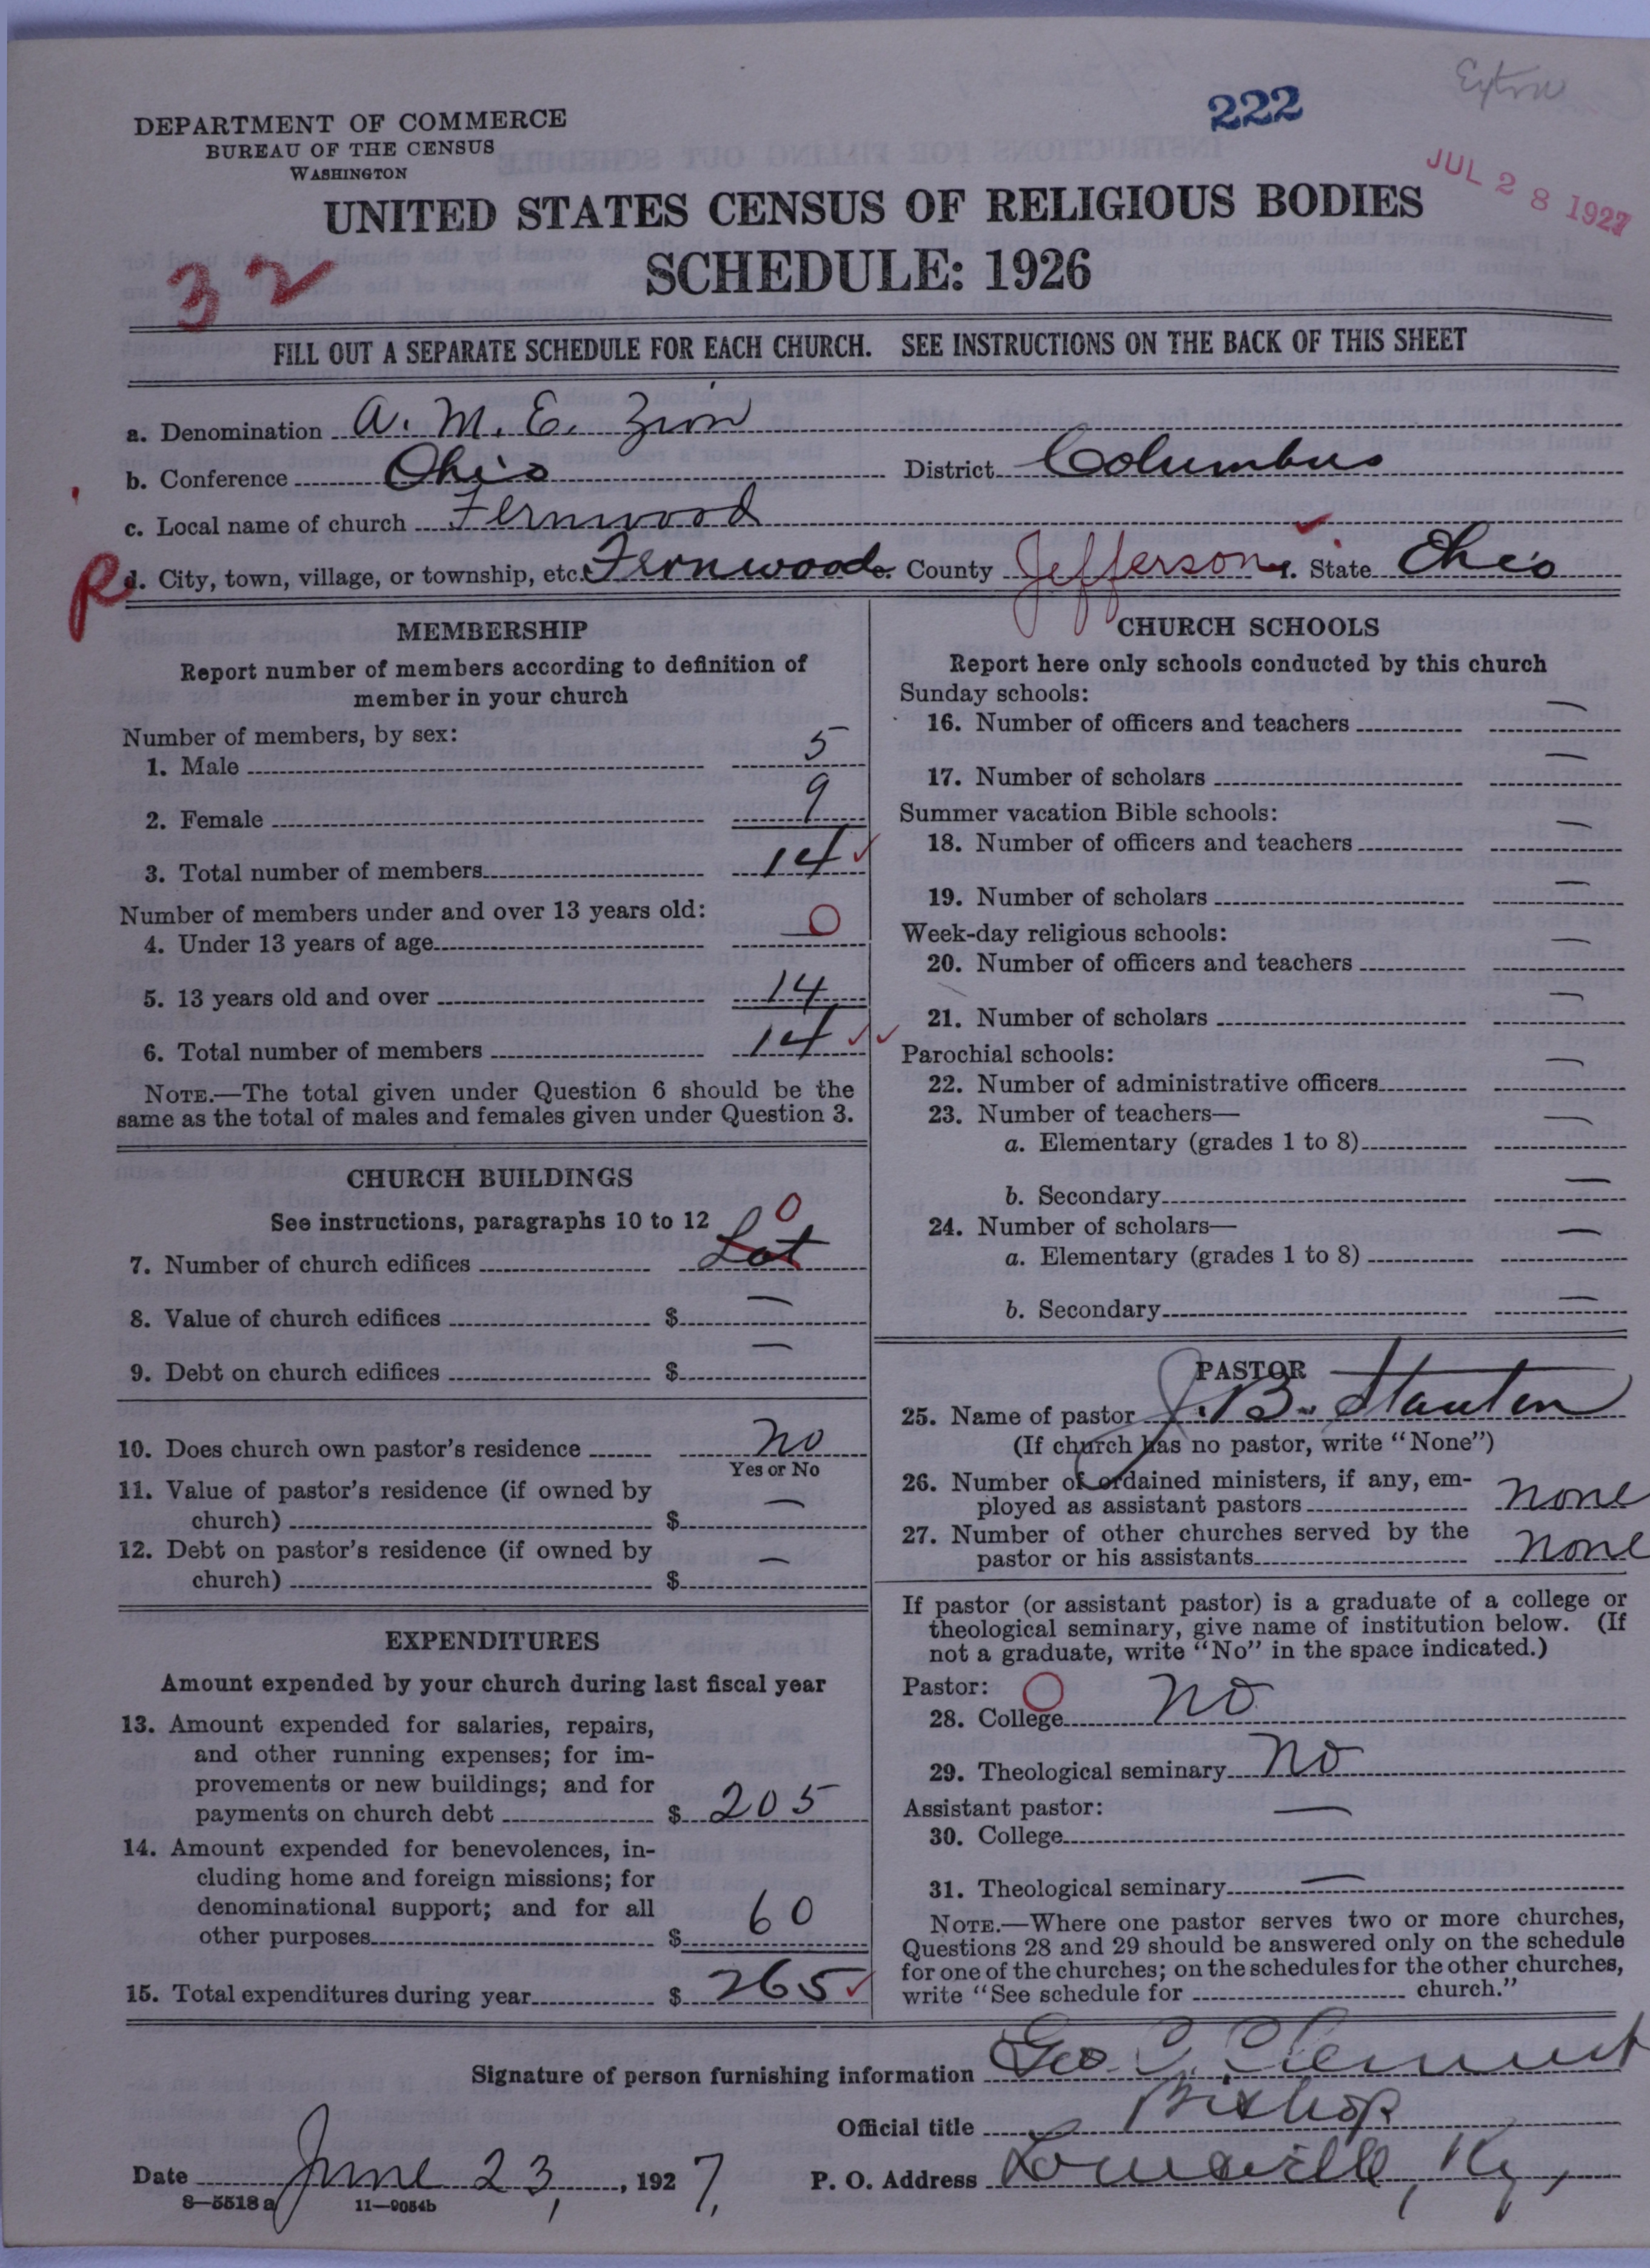 222
Extra
DEPARTMENT OF COMMERCE
BUREAU OF THE CENSUS
WASHINGTON
JUL 28 1927
UNITED STATES CENSUS OF RELIGIOUS BODIES
SCHEDULE: 1926
32
FILL OUT A SEPARATE SCHEDULE FOR EACH CHURCH. SEE INSTRUCTIONS ON THE BACK OF THIS SHEET
a. Denomination A. M. E. Zion
b. Conference Ohio District Columbus
c. Local name of church Fernwood
R d. City, town, village, or township, etc. Fernwood e. County Jefferson f. State Ohio
MEMBERSHIP
Report number of members according to definition of
member in your church
Number of members, by sex:
1. Male 5
2. Female 9
3. Total number of members 14 ✓
Number of members under and over 13 years old:
4. Under 13 years of age 0
5. 13 years old and over 14
6. Total number of members 14 ✓✓
NOTE.—The total given under Question 6 should be the
same as the total of males and females given under Question 3.
CHURCH BUILDINGS
See instructions, paragraphs 10 to 12
0
7. Number of church edifices Lot
8. Value of church edifices $ —
9. Debt on church edifices $ —
10. Does church own pastor's residence No
Yes or No
11. Value of pastor's residence (if owned by
church) $ —
12. Debt on pastor's residence (if owned by
church) $ —
EXPENDITURES
Amount expended by your church during last fiscal year
13. Amount expended for salaries, repairs,
and other running expenses; for im-
provements or new buildings; and for
payments on church debt $ 205
14. Amount expended for benevolences, in-
cluding home and foreign missions; for
denominational support; and for all
other purposes $ 60
15. Total expenditures during year $ 265 ✓
CHURCH SCHOOLS
Report here only schools conducted by this church
Sunday schools:
16. Number of officers and teachers —
17. Number of scholars —
Summer vacation Bible schools:
18. Number of officers and teachers —
19. Number of scholars —
Week-day religious schools:
20. Number of officers and teachers —
21. Number of scholars —
Parochial schools:
22. Number of administrative officers —
23. Number of teachers—
a. Elementary (grades 1 to 8) —
b. Secondary —
24. Number of scholars—
a. Elementary (grades 1 to 8) —
b. Secondary —
PASTOR
25. Name of pastor J. B. Stanton
(If church has no pastor, write "None")
26. Number of ordained ministers, if any, em-
ployed as assistant pastors none
27. Number of other churches served by the
pastor or his assistants none
If pastor (or assistant pastor) is a graduate of a college or
theological seminary, give name of institution below. (If
not a graduate, write "No" in the space indicated.)
Pastor: O
28. College No
29. Theological seminary No
Assistant pastor:
30. College —
31. Theological seminary —
NOTE.—Where one pastor serves two or more churches,
Questions 28 and 29 should be answered only on the schedule
for one of the churches; on the schedules for the other churches,
write "See schedule for church."
Signature of person furnishing information Geo. C. Clement
Official title Bishop
Date June 23, 1927. P. O. Address Louisville, Ky,
8—5518 a 11—9054b